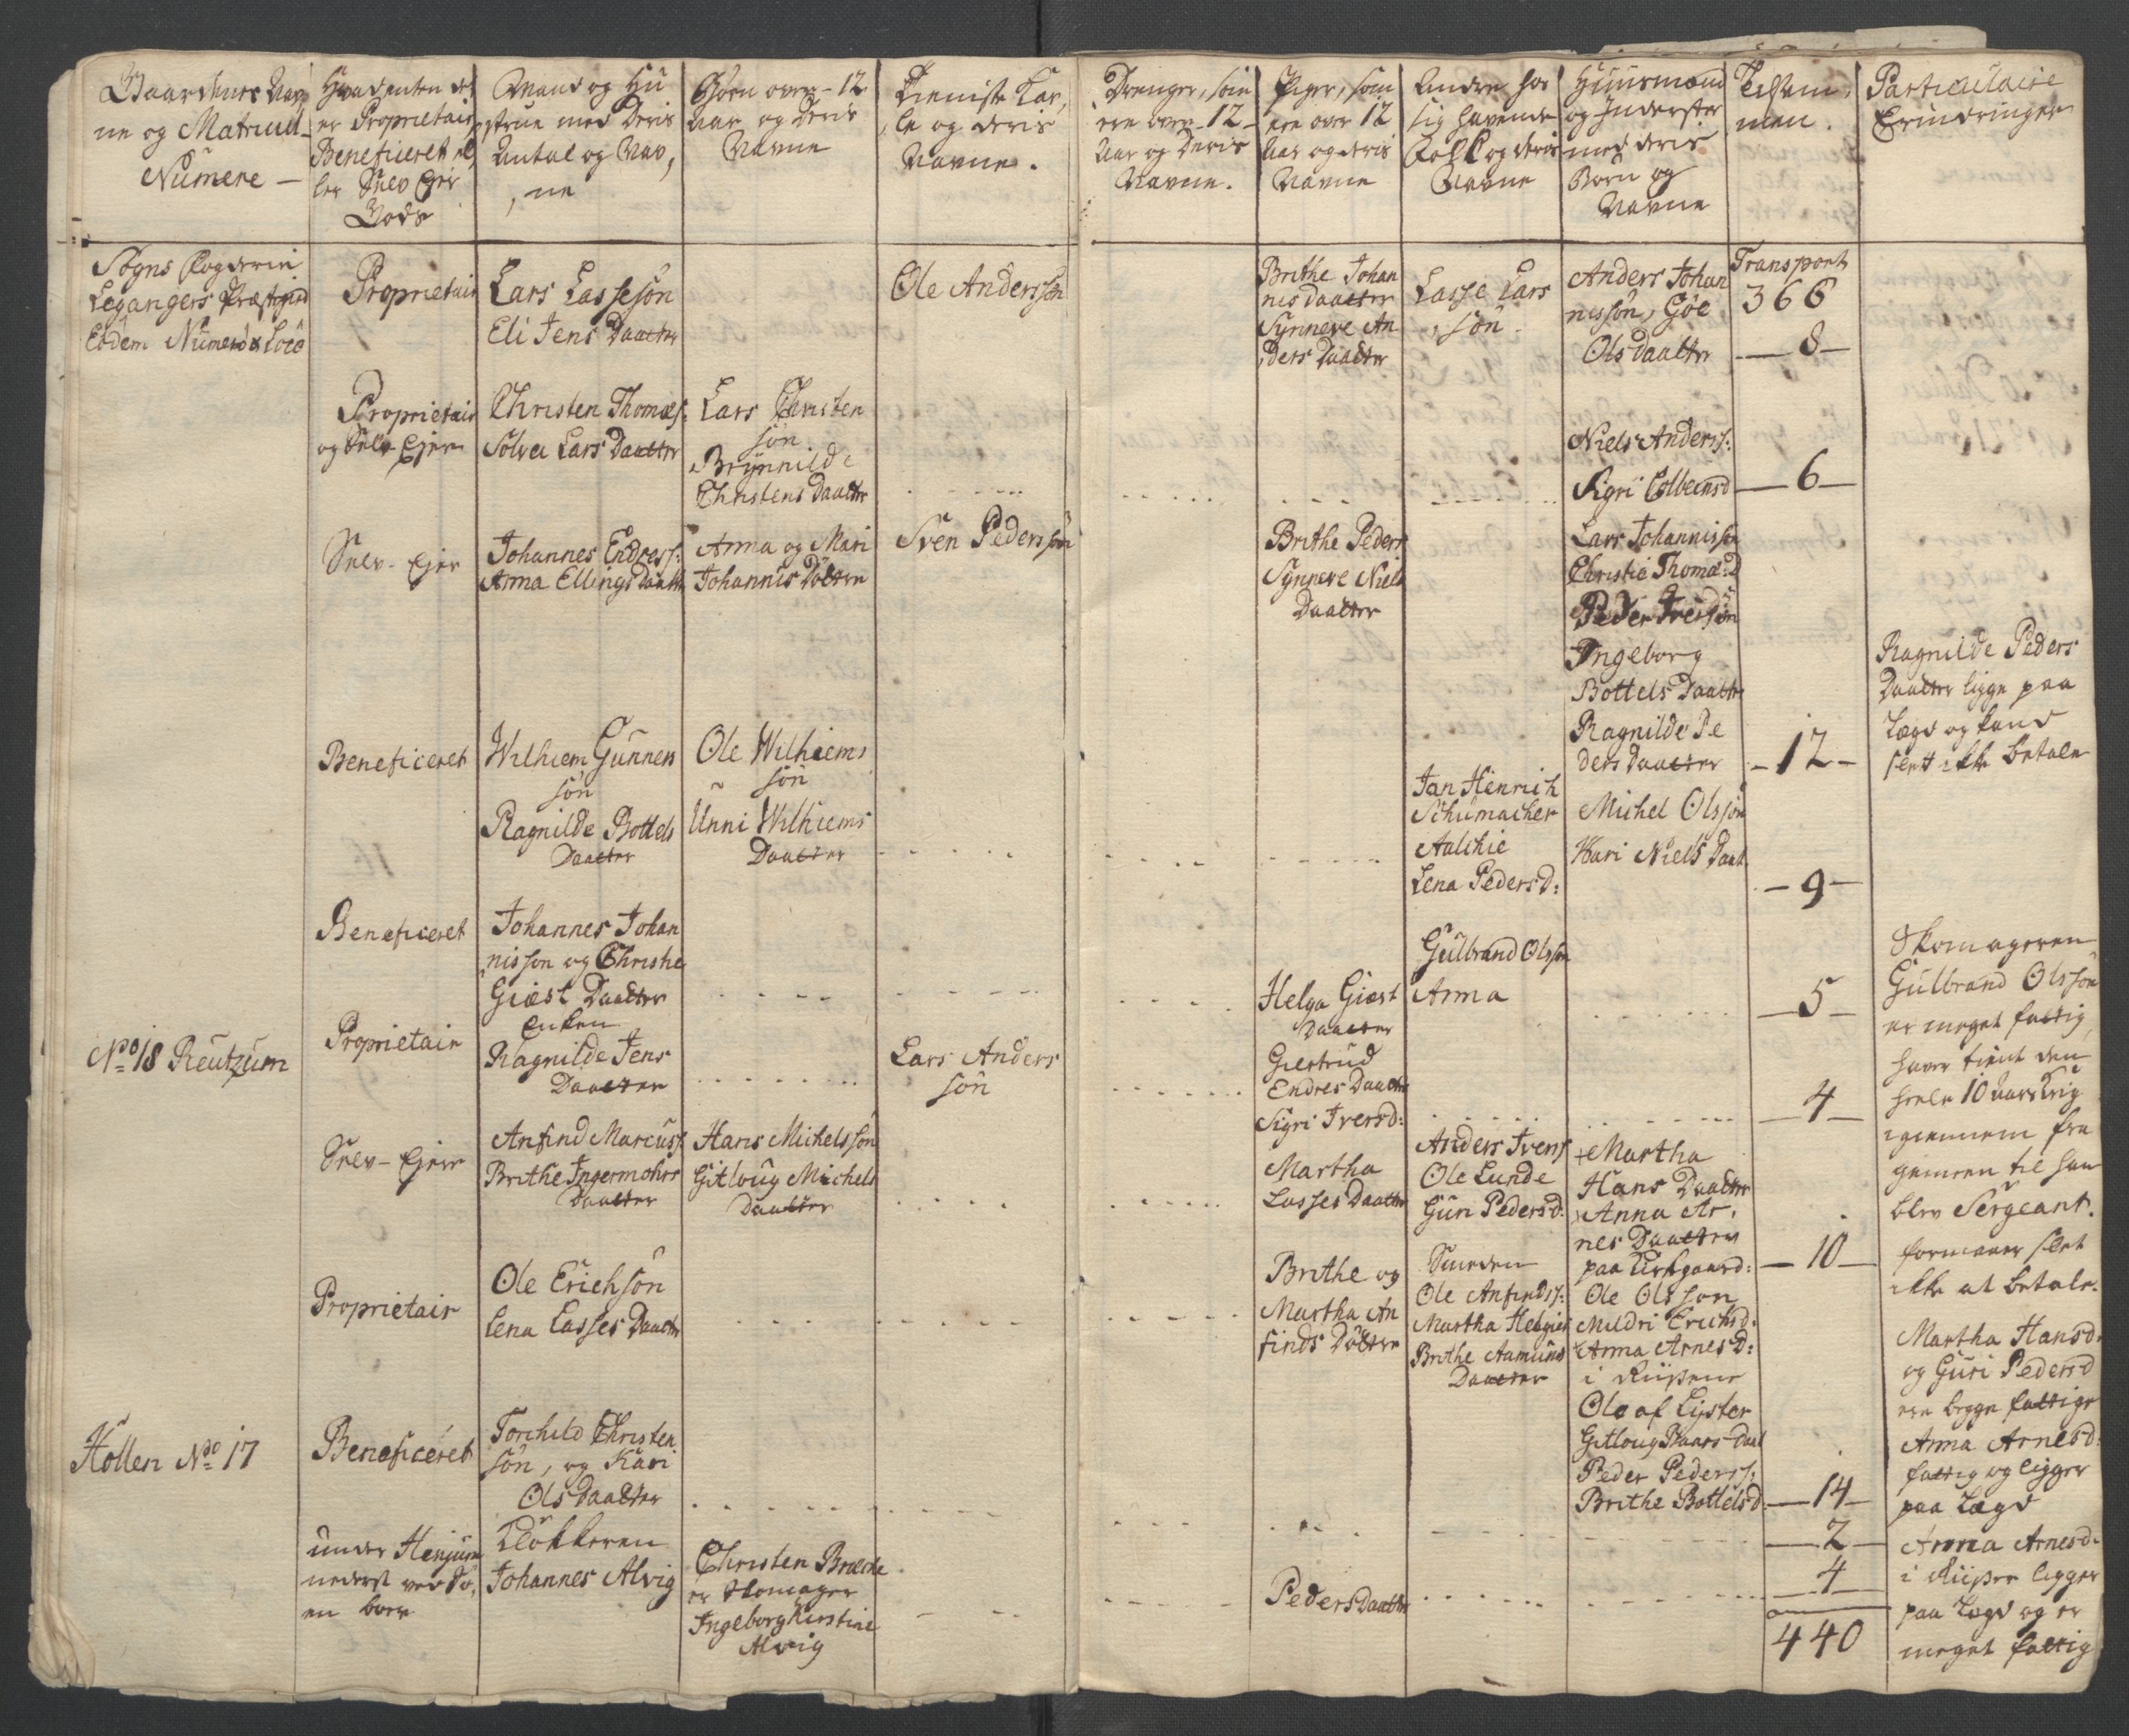 Gaardenes Nav,
ne og Matricul
Numere —
Hvad enten det
er Proprietair
Beneficeret el,
ler Selv Ejer
Gods
Mand og Hu
strue med Deris
Antal og Nav,
ne
Børn over 12
Aar og Deris
Navne
Tieniste Kar,
le og deris
Navne.
Drenger, som
ere over 12
Aar og Deris
Navne.
Piger, som
ere over 12
Aar og deris
Navne
Andre hos
sig havende
Folk og deris
Navne
Huusmænd
og Inderster
med deris
Børn og
Navne
Tilsam,
men.
Particulaire
Erindringer
Sogns Fogderie
Legangers Præstegield
Eodem Numero & Loco
Proprietair
Lars Lassesøn
Eli Jens Daatter
Ole Anderssøn
Brithe Johan
nis daatter
Synneve An
ders Daatter
Lasse Lars
søn
Anders Johan
nissøn, Gøe
Ols daatter
Transport
366
8
Proprietair
og Selv Ejer
Christen Thomæs:
Solvei Lars Daatter
Lars Christen
søn
Brynnilde
Christens Daatter
Niels Anderss:
Sigri Colbeensd
6
Selv-Ejer
Johannes Endress:
Anna Ellings Daatter
Anna og Mari
Johannis Døttre
Sven Pederssøn
Brithe Peders
Synneve Niels
Daatter
Lars Johannissøn
Christie Thomæ:D
Peder Iverssøn
Ingeborg
Bottels Daatter
Ragnilde Pe
ders Daatter
12
Ragnilde Peders
Daatter ligge paa
Lægd og kand
slett ikke betale
Beneficeret
Wilhiem Gunners
søn
Ragnilde Bottels
Daatter
Ole Wilhiems
søn
Unni Wilhiems
Daatter
Jan Henrich
Schumacher
Aalchie
Lena Pedersd:
Michel Olssøn
Kari Niels Daat
9
Beneficeret
Johannes Johan
nissøn og Christie
Giæst Daatter
Helga Giæst
Daatter
Gulbrand Olssøn
Anna
5
Skomageren
Gulbrand Olssøn
er meget fattig,
haver tient den
heele 10 aars Krig
igiennem fra
gemeen til han
blev Sergeant.
formaaer slet
ikke at betale.
No 18 Reutzum
Proprietair
Enken
Ragnilde Jens
Daatter
Lars Anders
søn
Giertrud
Endres Daatter
Sigri Iversd:
4
Selv-Ejer
Anfind Marcuss
Brithe Ingermohrs
Daatter
Hans Michelssøn
Gitloug Michels
Daatter
Martha
Lasses Daatter
Anders Ivers
Ole Lunde
Guri Pedersd:
Martha
Hans Daatter
Anna Ar,
nes Daatter
paa Kirkgaard:
10
Proprietair
Ole Erichsøn
Lena Lasses Daatter
Brithe og
Martha An
finds Døttre
Smeden
Ole Anfindss:
Martha Helgies
Brithe Aamunds
Daatter
Ole Olssøn
Mildri Erichsd:
Anna Arnes D:
i Riisene
Ole af Lyster
Gitloug Daat
Peder Peders:
Brithe Bottelsd:
14
Martha Hansd:
og Guri Pedersd
ere begge fattige
Anna Arnesd:
fattig og ligger
paa Lægd
Hollen No 17
Beneficeret
Torchild Christen
søn, og Kari
Ols Daatter
2
under Henjum
nederst ved Sø,
en boer
Klokkeren
Johannes Alvig
Christen Bræche
er Skomager
Ingeborg Kirstine
Alvig
Peders Daatter
4
440
Anna Arnesd:
i Riisene ligger
paa Lægd og er
meget fattig